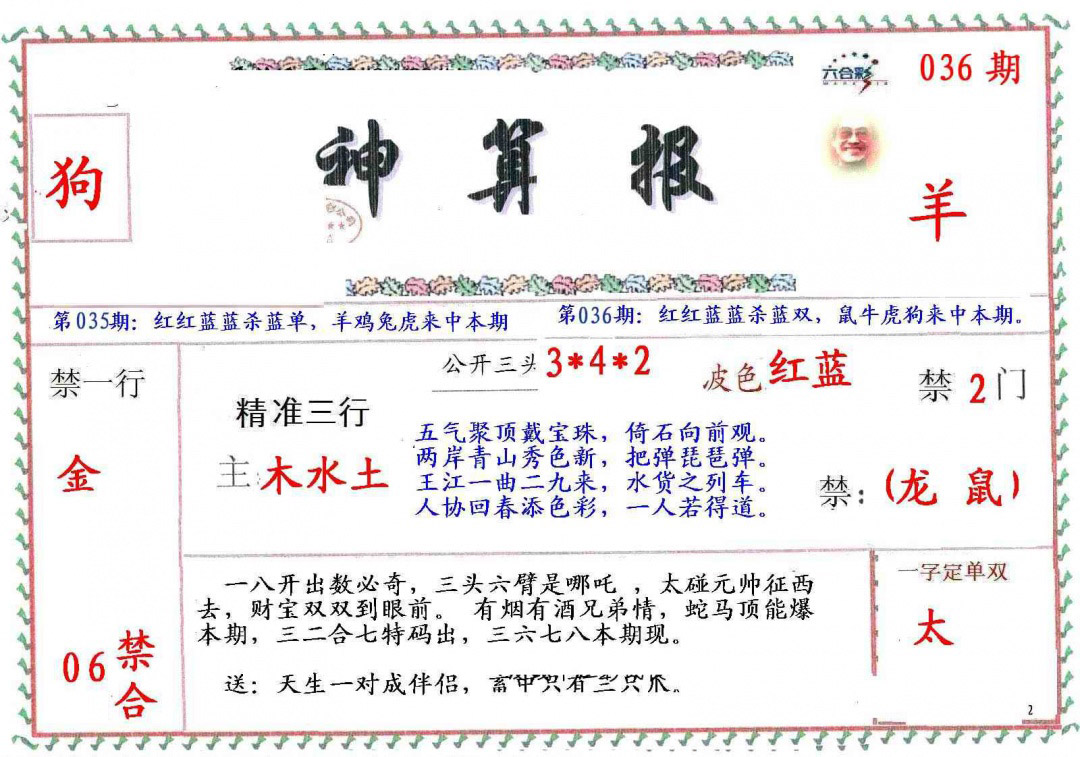 六合彩
036 期
狗
神算报
羊
第035期：红红蓝蓝杀蓝单，羊鸡兔虎来中本期
第036期：红红蓝蓝杀蓝双，鼠牛虎狗来中本期。
禁一行
金
06 禁合
公开三头 3*4*2
波色 红蓝
精准三行
主：木水土
五气聚顶戴宝珠，倚石向前观。
两岸青山秀色新，把弹琵琶弹。
王江一曲二九来，水货之列车。
人协回春添色彩，一人若得道。
禁 2 门
禁：（龙 鼠）
一八开出数必奇，三头六臂是哪吒 ，太碰元帅征西
去，财宝双双到眼前。 有烟有酒兄弟情，蛇马顶能爆
本期，三二合七特码出，三六七八本期现。
送：天生一对成伴侣，
一字定单双
太
2